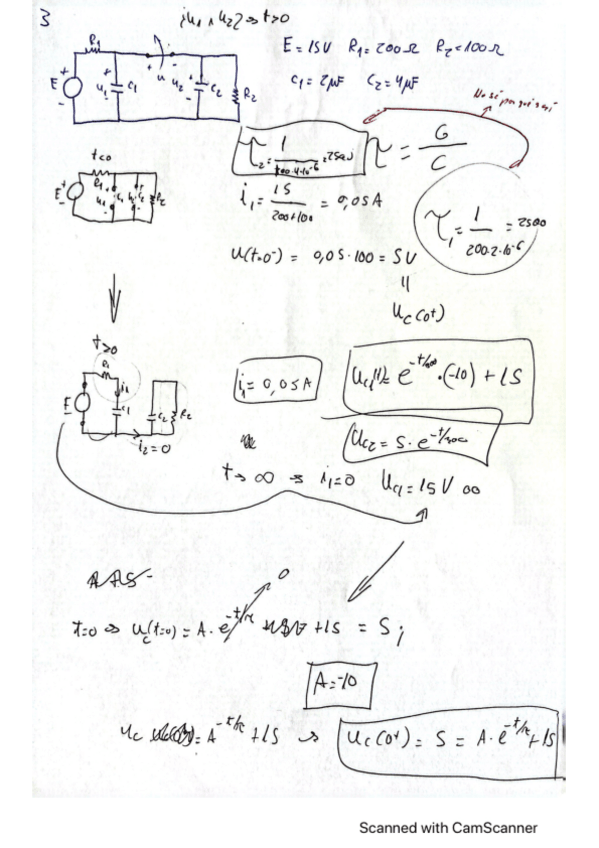 3
¿u1 ∧ u2? ⇒ t>0
E = 15V R1 = 200Ω R2 = 100Ω
C1 = 2μF C2 = 4μF
R1
E + - + u1 - C1 + u + u2 - C2 R2
t<0
R1
E
τ2 = 1 / 100·4·10^-6 = 2500
τ = G / C
i1 = 15 / 200+100 = 0,05A
τ1 = 1 / 200·2·10^-6 = 2500
u(t=0-) = 0,05·100 = 5V
=
uc(0+)
t>0
R1
E i1 C1 C2 R2
i2 = 0
i1 = 0,05A
e^-t/ ·(-10) + 15
uC2 = 5·e^-t/
t → ∞ ⇒ i1 = 0 uC1 = 15V ∞
0
t=0 ⇒ uc(t=0) = A·e^-t/τ +15 = 5;
A = -10
uc = A^-t/τ + 15 → uc(0+) = 5 = A·e^-t/τ + 15
Scanned with CamScanner